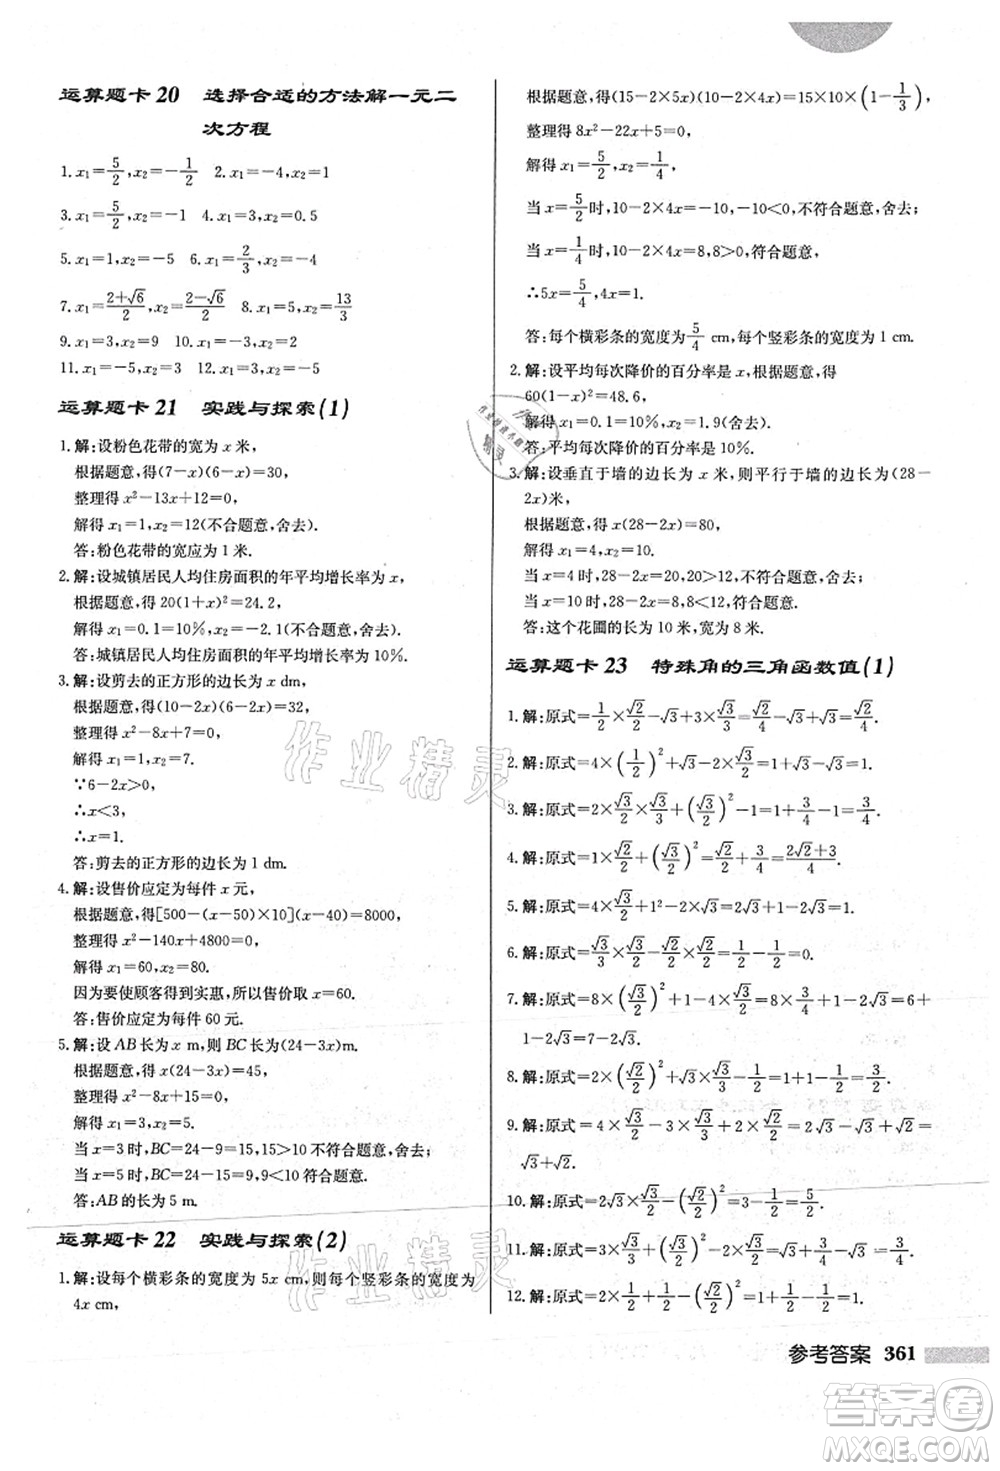 运算题卡 20 选择合适的方法解一元二
次方程
1. x₁=5/2, x₂=-1/2 2. x₁=-4, x₂=1
3. x₁=5/2, x₂=-1 4. x₁=3, x₂=0.5
5. x₁=1, x₂=-5 6. x₁=2/3, x₂=-5
7. x₁=(2+√6)/2, x₂=(2-√6)/2 8. x₁=3, x₂=13/3
9. x₁=3, x₂=9 10. x₁=-3, x₂=2
11. x₁=-5, x₂=3 12. x₁=5, x₂=7
运算题卡 21 实践与探索(1)
1. 解:设粉色花带的宽为 x 米,
根据题意,得(7-x)(6-x)=30,
整理得 x²-13x+12=0,
解得 x₁=1, x₂=12(不合题意,舍去).
答:粉色花带的宽应为 1 米.
2. 解:设城镇居民人均住房面积的年平均增长率为 x,
根据题意,得 20(1+x)²=24.2,
解得 x₁=0.1=10%, x₂=-2.1(不合题意,舍去).
答:城镇居民人均住房面积的年平均增长率为 10%.
3. 解:设剪去的正方形的边长为 x dm,
根据题意,得(10-2x)(6-2x)=32,
整理得 x²-8x+7=0,
解得 x₁=1, x₂=7.
∵6-2x>0,
∴x<3,
∴x=1.
答:剪去的正方形的边长为 1 dm.
4. 解:设售价应定为每件 x 元,
根据题意,得[500-(x-50)×10](x-40)=8000,
整理得 x²-140x+4800=0,
解得 x₁=60, x₂=80.
因为要使顾客得到实惠,所以售价取 x=60.
答:售价应定为每件 60 元.
5. 解:设 AB 长为 x m,则 BC 长为(24-3x)m.
根据题意,得(24-3x)x=45,
整理得 x²-8x+15=0,
解得 x₁=3, x₂=5.
当 x=3 时,BC=24-9=15,15>10 不符合题意,舍去;
当 x=5 时,BC=24-15=9,9<10 符合题意.
答:AB 的长为 5 m.
运算题卡 22 实践与探索(2)
1. 解:设每个横彩条的宽度为 5x cm,则每个竖彩条的宽度为
4x cm,
根据题意,得(15-2×5x)(10-2×4x)=15×10×(1-1/3),
整理得 8x²-22x+5=0,
解得 x₁=5/2, x₂=1/4,
当 x=5/2 时,10-2×4x=-10,-10<0,不符合题意,舍去;
当 x=1/4 时,10-2×4x=8,8>0,符合题意,
∴5x=5/4, 4x=1.
答:每个横彩条的宽度为 5/4 cm,每个竖彩条的宽度为 1 cm.
2. 解:设平均每次降价的百分率是 x,根据题意,得
60(1-x)²=48.6,
解得 x₁=0.1=10%, x₂=1.9(舍去).
答:平均每次降价的百分率是 10%.
3. 解:设垂直于墙的边长为 x 米,则平行于墙的边长为(28-
2x)米,
根据题意,得 x(28-2x)=80,
解得 x₁=4, x₂=10.
当 x=4 时,28-2x=20,20>12,不符合题意,舍去;
当 x=10 时,28-2x=8,8<12,符合题意.
答:这个花圃的长为 10 米,宽为 8 米.
运算题卡 23 特殊角的三角函数值(1)
1. 解:原式=1/2×√2/2-√3×√3/3=√2/4-√3+√3=√2/4.
2. 解:原式=4×(1/2)²-√3×√3/3+√2×√2/2=1-1+1=1.
3. 解:原式=2×√3/2×√3/3+(√3/2)²-1=1+3/4-1=3/4.
4. 解:原式=1×√2/2+(√3/2)²=√2/2+3/4=(2√2+3)/4.
5. 解:原式=6×√3/3+1²-2×√3=2√3+1-2√3=1.
6. 解:原式=√3/2×√3/3-√2×√2/2+√3×√3/2=1/2-1+3/2=1.
7. 解:原式=8×(√3/2)²+1-4×√3/2=8×3/4+1-2√3=6+
1-2√3=7-2√3.
8. 解:原式=2×1/2+√3×√3-(√2/2)²=1+3-1/2=7/2.
9. 解:原式=4×√3/2×√3/3-√2×√2/2+2×1/2=2-1+1=2.
10. 解:原式=2√3×√3/2-(√2/2)²×1=3-1/2=5/2.
11. 解:原式=3×√3/3+(√2/2)²-2×√3/2=√3+1/2-√3=1/2.
12. 解:原式=1/2+2×1/2-(√2/2)²=1/2+1-1/2=1.
参考答案 361
作业精灵
作业精灵
答案圈
MXQE.COM